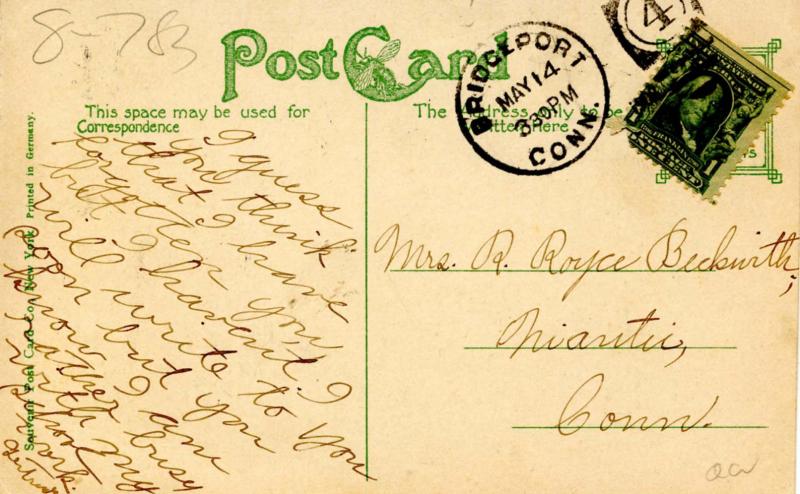 8-783
Post Card
This space may be used for
Correspondence
The Address only to be
written here
BRIDGEPORT
MAY 14
330PM
CONN.
4
1
I guess
you think
that I have
forgotten you,
but I haven't. I
will write to you
soon but you
know I am
rather busy
with my
school
work.
Mrs. R. Royce Beckwith,
Niantic,
Conn.
Souvenir Post Card Co., New York. Printed in Germany.